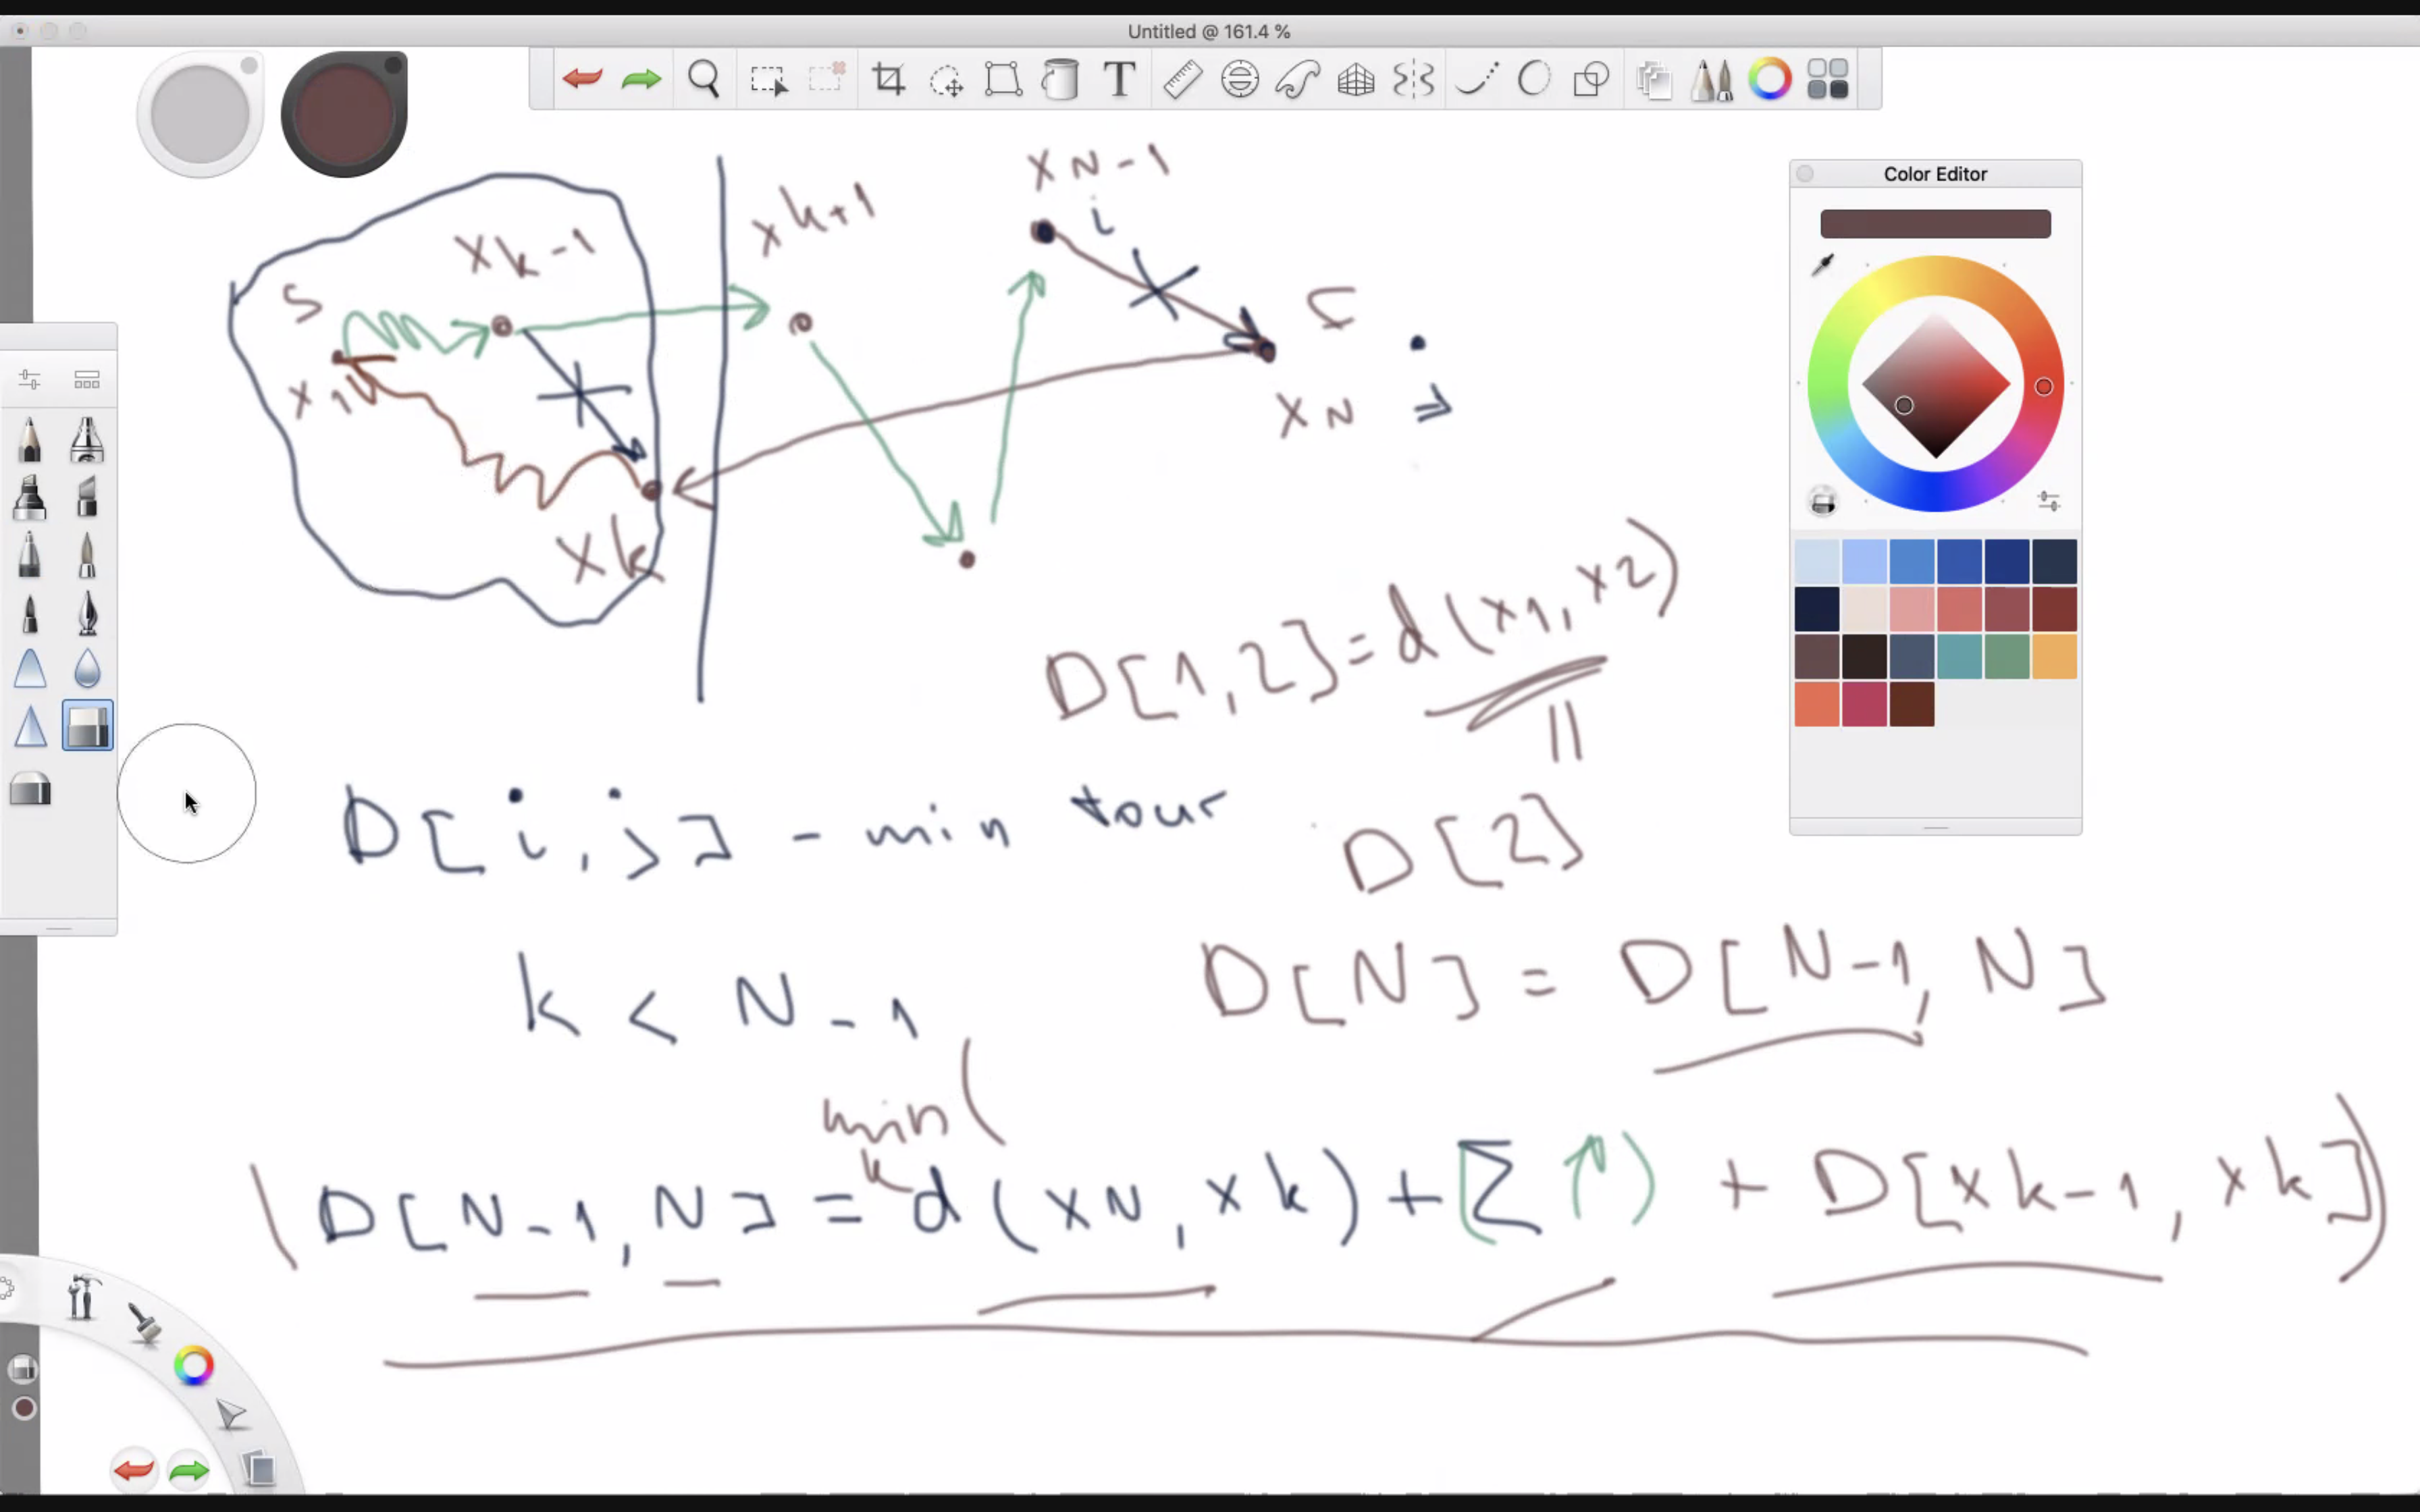 Untitled @ 161.4 %
T
Color Editor
xN-1
i
xk+1
xk-1
S
x1
xN
xk
D[1,2]=d(x1,x2)
=
D[i,j] - min tour
D[2]
k < N-1
D[N] = D[N-1, N]
min (
k
D[N-1, N] = d(xN, xk) + [Σ ↑) + D[xk-1, xk])